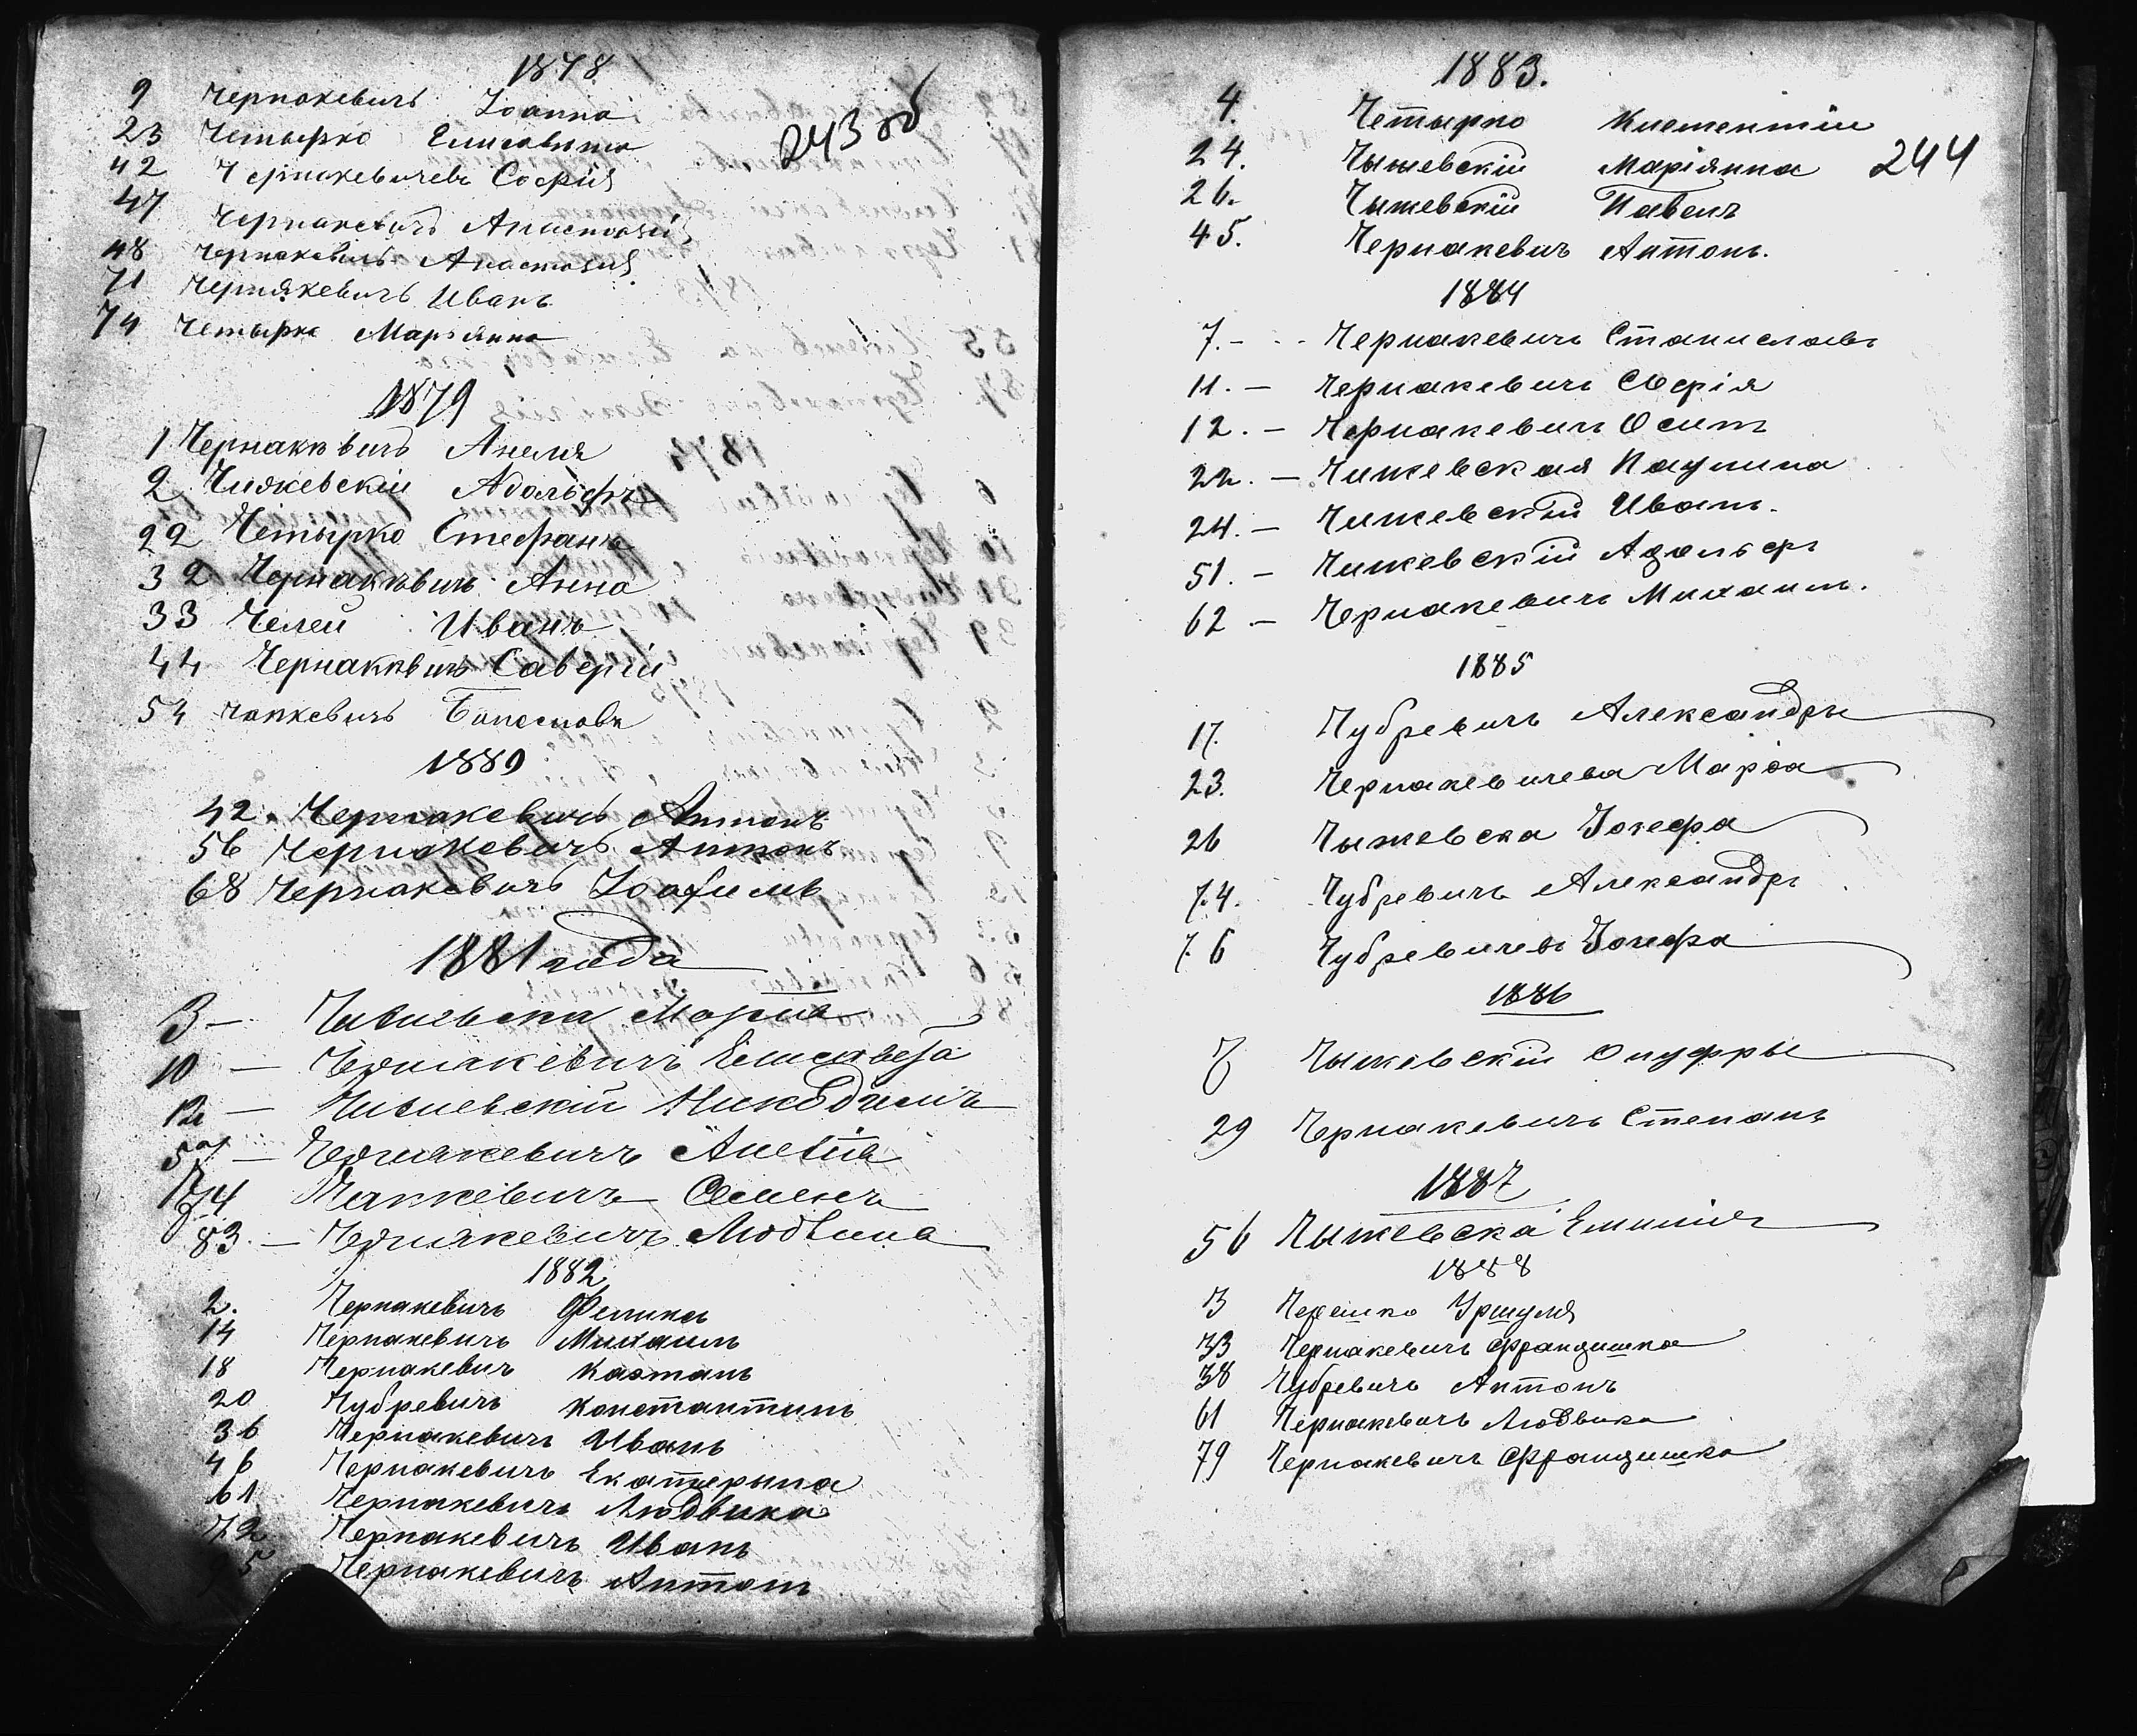 1878
9 Чернакевичъ Іоанна
243 об
23 Четырко Елисавета
42 Чернакевичевъ Софія
47 Чернакевичъ Анастазія
48 Чернакевичъ Анастазія
71 Чернякевичъ Иванъ
74 Четырко Маріянна
1879
1 Чернакѣвичъ Анеля
2 Чижевскій Адольфъ
22 Четырко Стефанъ
32 Чернакѣвичъ Анна
33 Челей Иванъ
44 Чернакѣвичъ Саверій
54 Чапкевичъ Болеславъ
1880
42. Чернакевичъ Антонъ
56 Чернакевичъ Антонъ
68 Чернакевичъ Іоахимъ
1881 года
3 — Чижевска Марія
10 — Чернакевичъ Елисавета
12 — Чижевскій Никодимъ
57 — Чернякевичъ Анеля
74 Чапкевичъ Семенъ
83 — Чернякевичъ Людвика
1882
2. Чернакевичъ Феликсъ
14 Чернакевичъ Михаилъ
18 Чернакевичъ Каэтанъ
20 Чубревичъ Константинъ
36 Чернакевичъ Иванъ
46 Чернакевичъ Екатерына
61 Чернакевичъ Людвика
72 Чернакевичъ Иванъ
Чернакевичъ Антонъ
1883.
4. Четырко Клементій
24. Чыжевскій Маріянна 244
26. Чыжевскій Павелъ
45. Чернакевичъ Антонъ.
1884
7. — Чернакевичъ Станиславъ
11. — Чернакевичъ Софія
12. — Чернакевичъ Осипъ
22. — Чижевская Паулина
24. — Чижевскій Иванъ.
51. — Чижевскій Адольфъ
62 — Чернакевичъ Михаилъ.
1885
17. Чубревичъ Александръ
23. Чернакевичева Марія
26 Чыжевска Іозефа
74. Чубревичъ Александръ
76 Чубревичевъ Іозефа
1886
7 Чыжевскій Онуфры
29 Чернакевичъ Степанъ
1887
56 Чыжевска Емилія
1888
3 Черешко Уршуля
33 Чернакевичъ Францишка
38 Чубревичъ Антонъ
61 Чернакевичъ Людвика
79 Чернакевичъ Францишка